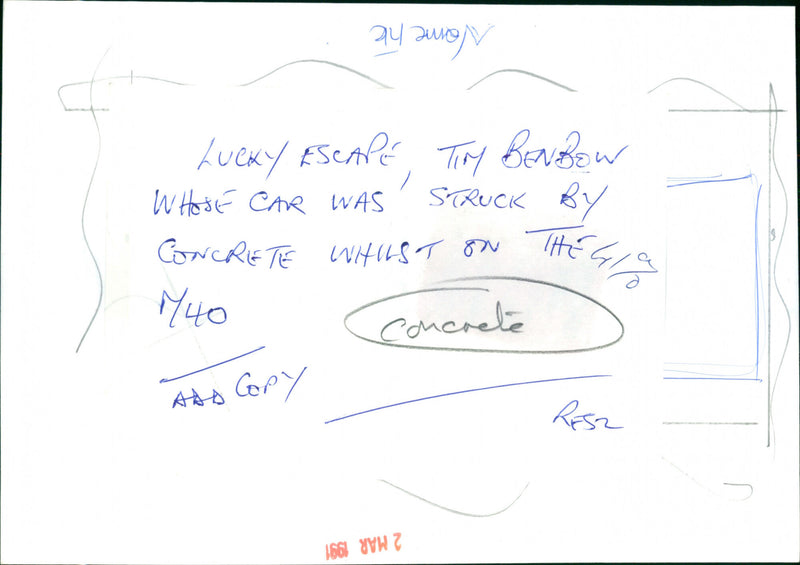 Name file
LUCKY ESCAPE, TIM BENBOW
WHOSE CAR WAS STRUCK BY
CONCRETE WHILST ON THE
M40
Concrete
ADD COPY
2 MAR 1991